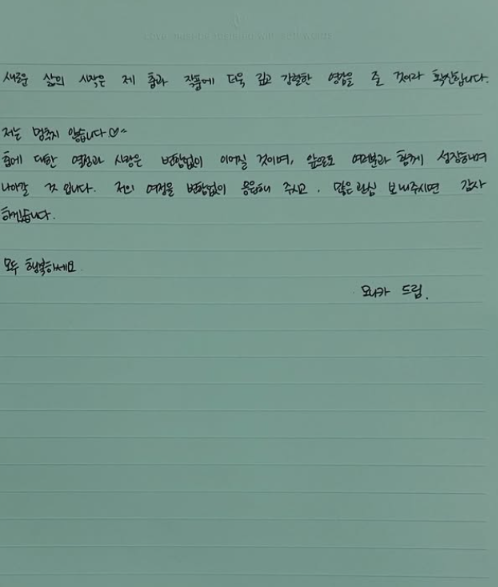 새로운 삶의 시작은 제 춤과 작품에 더욱 깊고 강렬한 영감을 줄 것이라 확신합니다.
저는 멈추지 않습니다♡^
춤에 대한 열정과 사랑은 변함없이 이어질 것이며, 앞으로도 여러분과 함께 성장하며
나아갈 것 입니다. 저의 여정을 변함없이 응원해 주시고, 많은관심 보내주시면 감사
하겠습니다.
모두 행복하세요
모니카 드림.